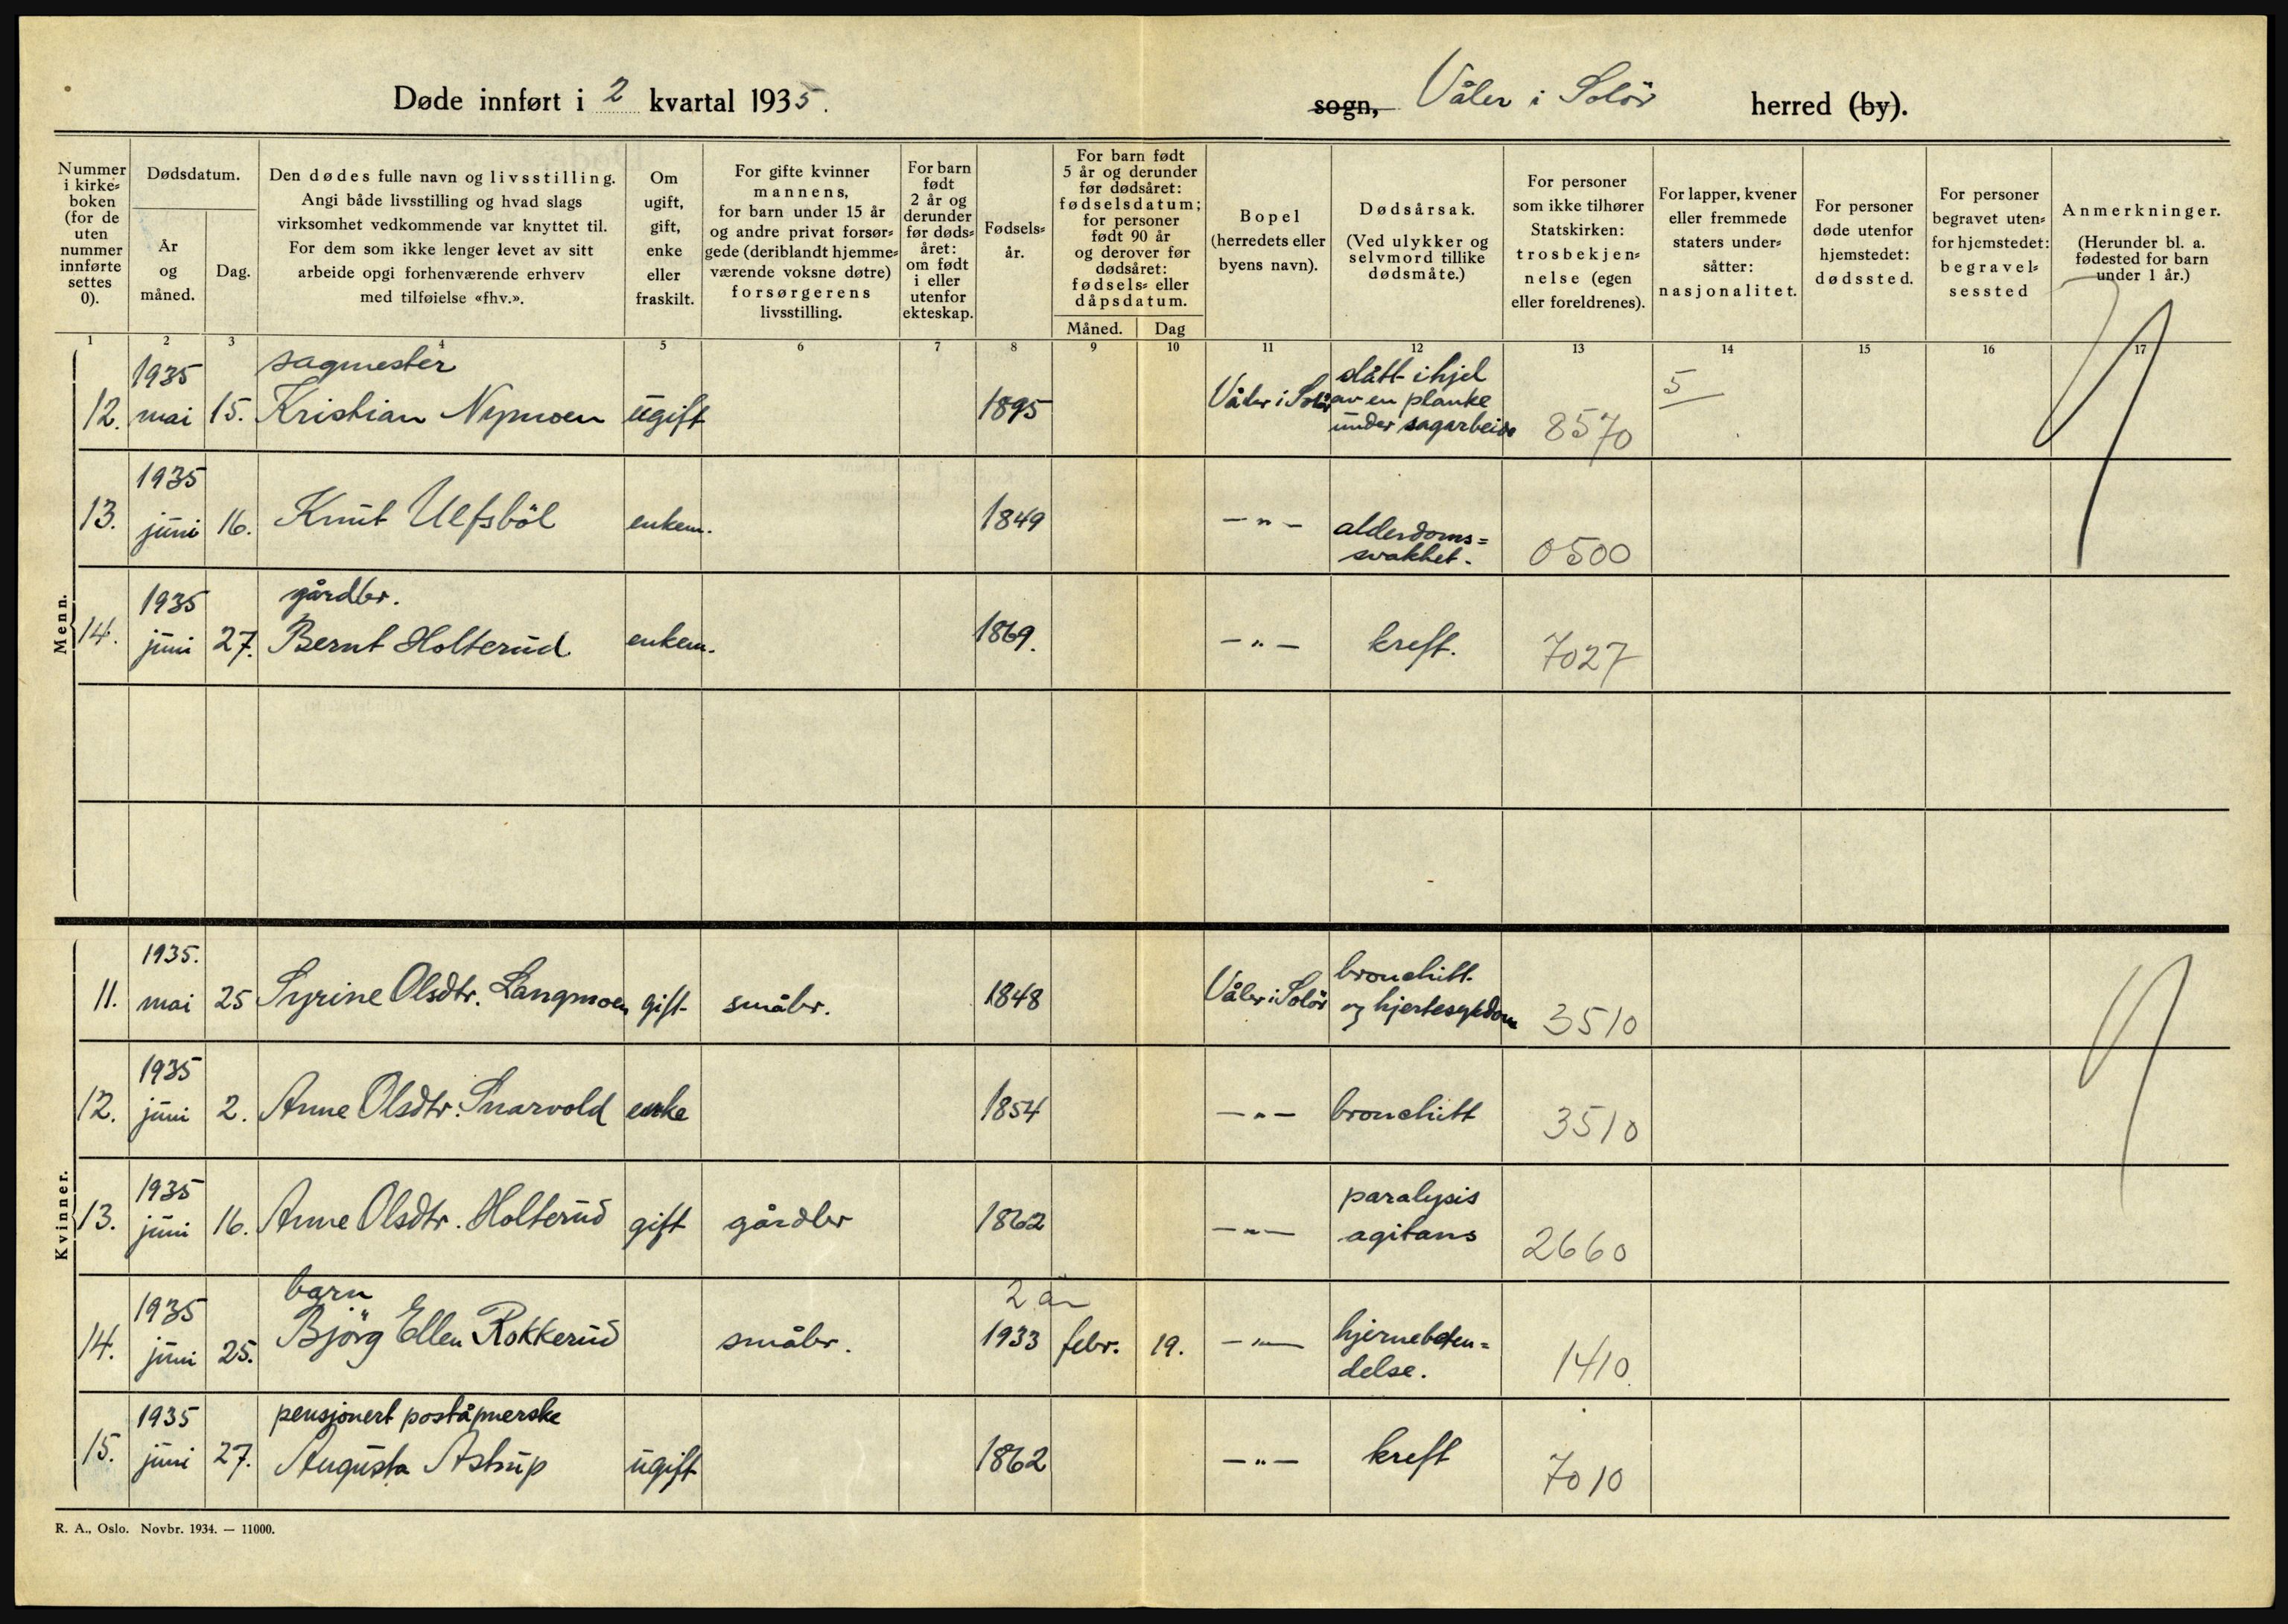 Døde innført i 2 kvartal 1935.
sogn, Våler i Solör herred (by).
Nummer i kirke= boken (for de uten nummer innførte settes 0).
Dødsdatum.
År og måned.
Dag.
Den dødes fulle navn og livsstilling.
Angi både livsstilling og hvad slags
virksomhet vedkommende var knyttet til.
For dem som ikke lenger levet av sitt
arbeide opgi forhenværende erhverv
med tilføielse «fhv.».
Om ugift, gift, enke eller fraskilt.
For gifte kvinner
mannens,
for barn under 15 år
og andre privat forsør=
gede (deriblandt hjemme=
værende voksne døtre)
forsørgerens
livsstilling.
For barn født 2 år og derunder før døds= året: om født i eller utenfor ekteskap.
Fødsels= år.
For barn født
5 år og derunder
før dødsåret:
fødselsdatum;
for personer
født 90 år
og derover før
dødsåret:
fødsels= eller
dåpsdatum.
Måned. Dag
Bopel
(herredets eller
byens navn).
Dødsårsak.
(Ved ulykker og
selvmord tillike
dødsmåte.)
For personer
som ikke tilhører
Statskirken:
trosbekjen=
nelse (egen
eller foreldrenes).
For lapper, kvener
eller fremmede
staters under=
såtter:
nasjonalitet.
For personer
døde utenfor
hjemstedet:
dødssted.
For personer
begravet uten=
for hjemstedet:
begravel=
sessted
Anmerkninger.
(Herunder bl. a.
fødested for barn
under 1 år.)
1 2 3 4 5 6 7 8 9 10 11 12 13 14 15 16 17
Menn.
12. 1935 mai 15. sagmester Kristian Nymoen ugift 1895 Våler i Solör slått ihjel av en planke under sagarbeide 8570 5
13. 1935 juni 16. Knut Ulfsböl enkem. 1849 — " — alderdoms= svakhet. 0500
14. 1935 juni 27. gårdbr. Bernt Holterud enkem. 1869. — " — kreft. 7027
Kvinner.
11. 1935. mai 25 Syrine Olsdtr. Langmoen gift småbr. 1848 Våler i Solör bronchitt og hjertesykdom 3510
12. 1935 juni 2. Anne Olsdtr. Snarvold enke 1854 — " — bronchitt 3510
13. 1935 juni 16. Anne Olsdtr. Holterud gift gårdbr 1862 — " — paralysis agitans 2660
14. 1935 juni 25. barn Björg Ellen Rokkerud småbr. 2 år 1933 febr. 19. — " — hjernebeten= delse. 1410
15. 1935 juni 27. pensjonert poståpnerske Augusta Astrup ugift 1862 — " — kreft 7010
R. A., Oslo. Novbr. 1934. — 11000.